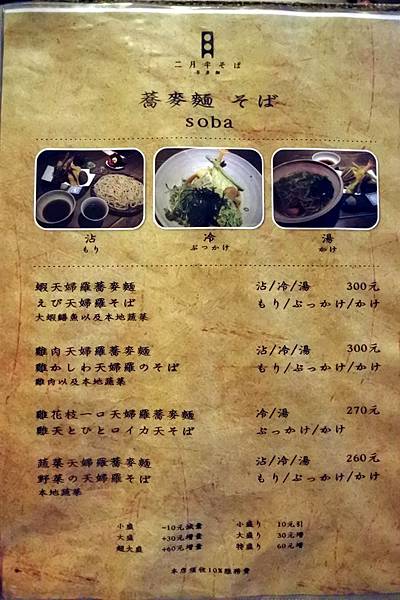 二月半そば
蕎麥麵
蕎麥麵 そば
soba
沾 冷 湯
もり ぶっかけ かけ
蝦天婦羅蕎麥麵 沾/冷/湯 300元
えび天婦羅そば もり/ぶっかけ/かけ
大蝦鱚魚以及本地蔬菜
雞肉天婦羅蕎麥麵 沾/冷/湯 300元
雞かしわ天婦羅のそば もり/ぶっかけ/かけ
雞肉以及本地蔬菜
雞花枝一口天婦羅蕎麥麵 冷/湯 270元
雞天とひとロイカ天そば ぶっかけ/かけ
蔬菜天婦羅蕎麥麵 沾/冷/湯 260元
野菜の天婦羅そば もり/ぶっかけ/かけ
本地蔬菜
小盛 -10元減量 小盛り 10元引
大盛 +30元增量 大盛り 30元增
超大盛 +60元增量 特盛り 60元增
本店須收10%服務費